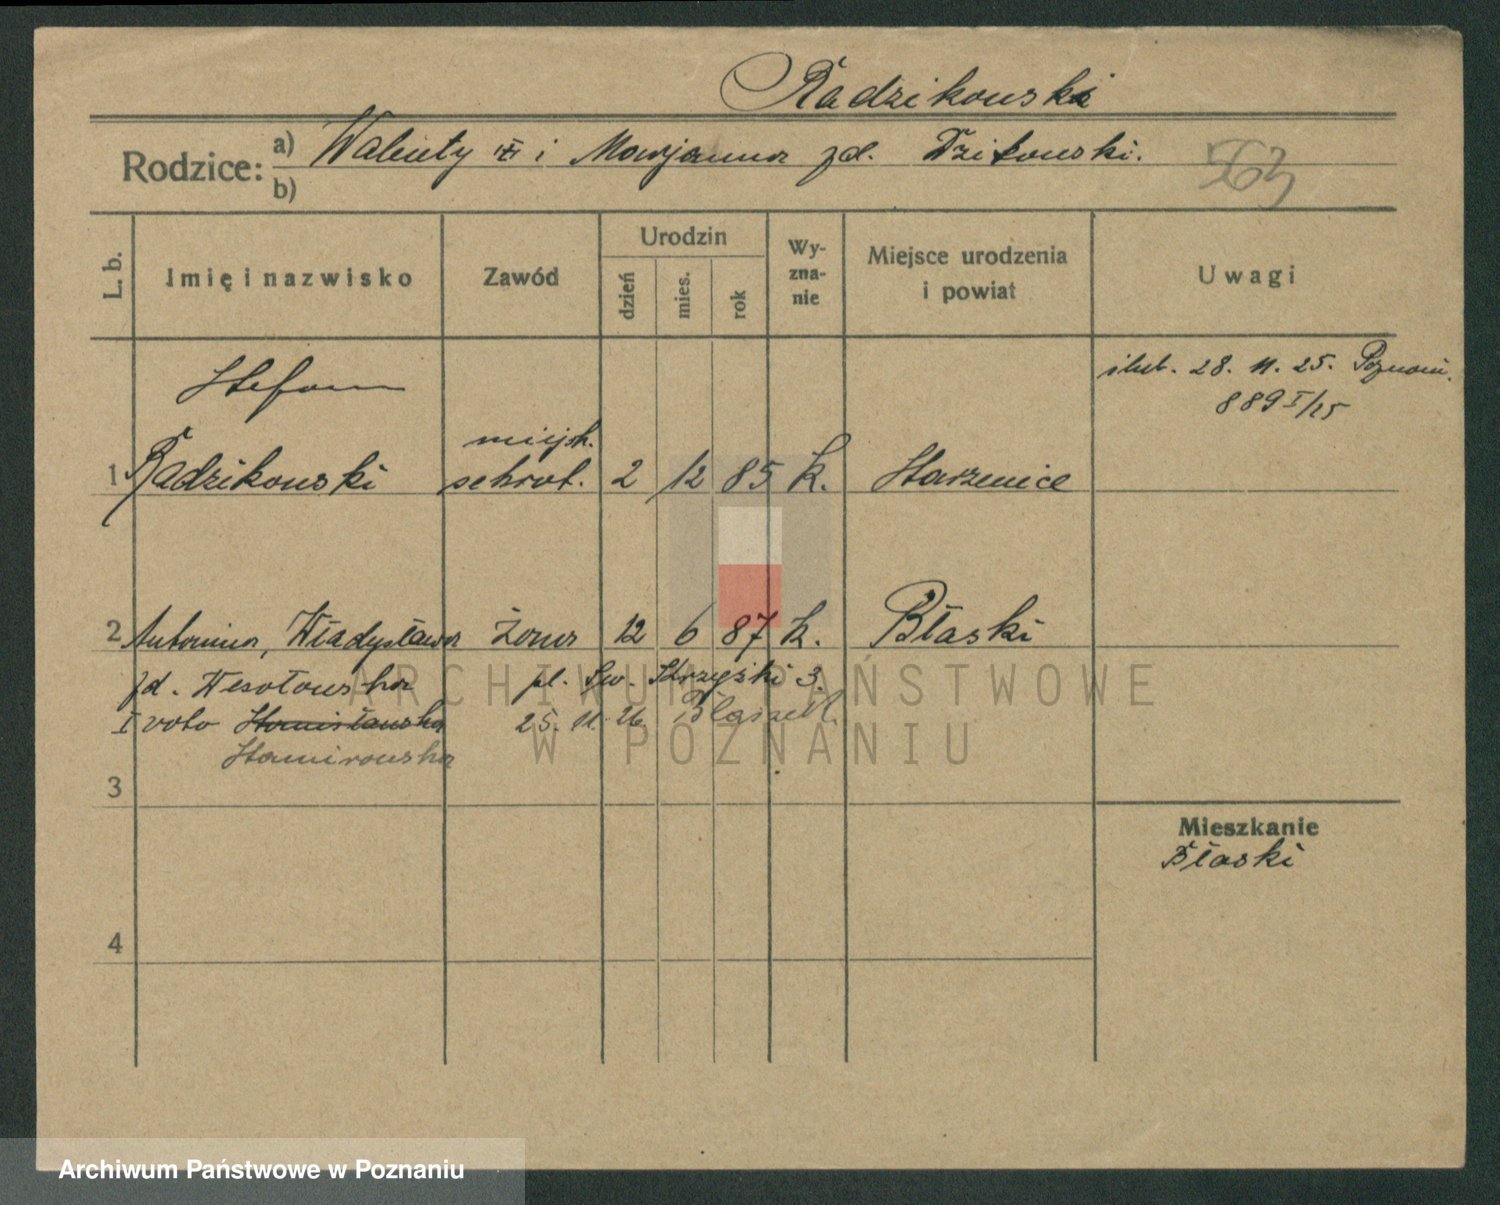 Radzikowski
Rodzice: a) Walenty i Marjanna zd. Dzikowski.
b)
563
L. b.
Imię i nazwisko
Zawód
Urodzin
dzień
mies.
rok
Wy-
zna-
nie
Miejsce urodzenia
i powiat
Uwagi
Stefan
ślub. 28. 11. 25. Poznań.
889 I/25
miejsk.
1 Radzikowski schrot. 2 12 85 k. Starzenice
2 Antonina, Władysława żona 12 6 87 k. Błaski
zd. Wesołowska pl. Św. Krzyski 3.
I voto Stanisławska 25. 11. 26.
Stamirowska
3
Mieszkanie
Błaski
4
ARCHIWUM PAŃSTWOWE
W POZNANIU
Archiwum Państwowe w Poznaniu